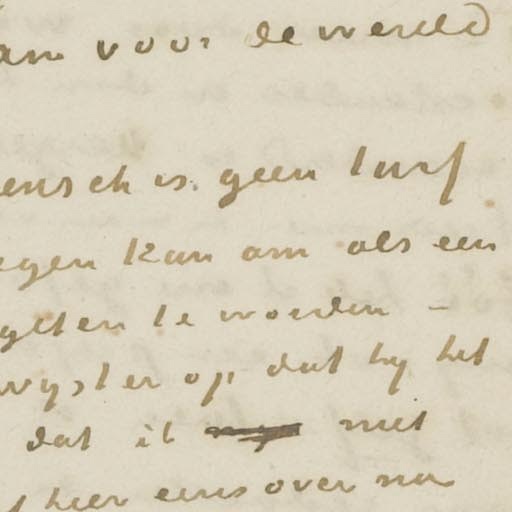 am voor de wereld
ensch is geen turf
egen kan om als een
gesten te worden –
wyster op dat hy het
dat ik niet
hier eens over na